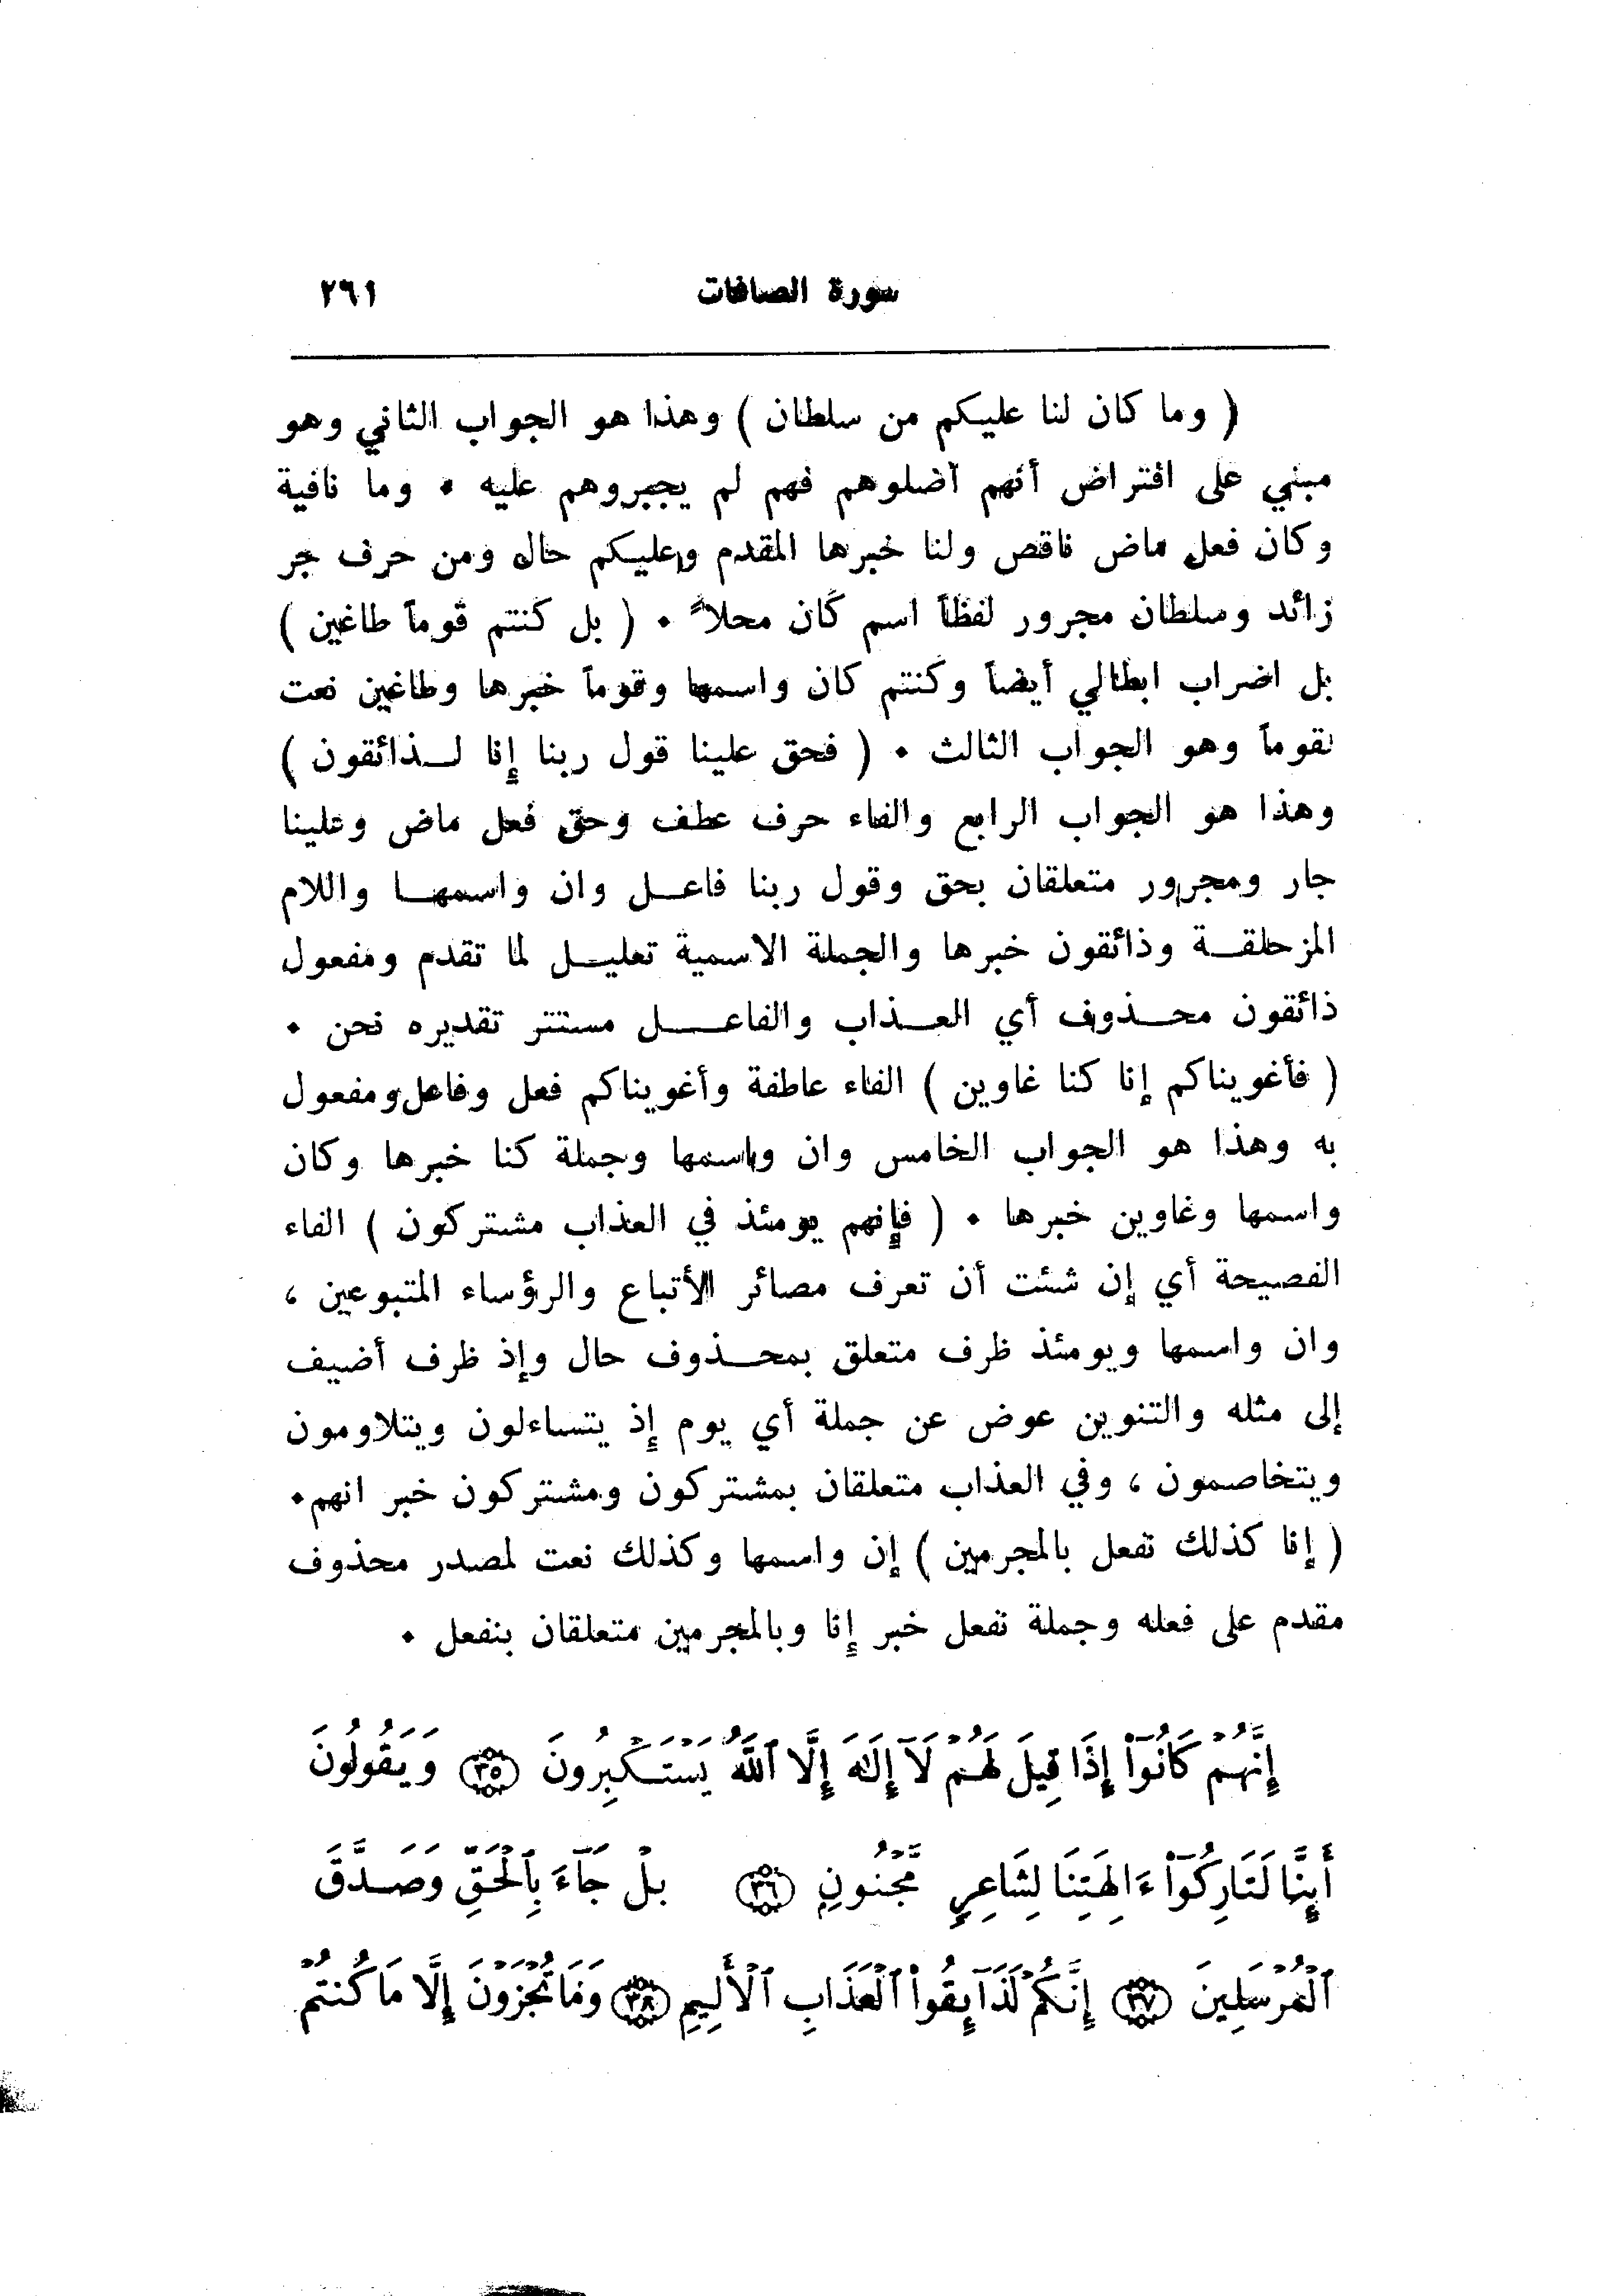 سورة الصافات ٢٦١
( وما كان لنا عليكم من سلطان ) وهذا هو الجواب الثاني وهو
مبني على افتراض أنهم أضلوهم فهم لم يجبروهم عليه ٠ وما نافية
وكان فعل ماض ناقص ولنا خبرها المقدم وعليكم حال ومن حرف جر
زائد وسلطان مجرور لفظاً اسم كان محلاً ٠ ( بل كنتم قوماً طاغين )
بل اضراب ابطالي أيضاً وكنتم كان واسمها وقوماً خبرها وطاغين نعت
لقوماً وهو الجواب الثالث ٠ ( فحق علينا قول ربنا إنا لــذائقون )
وهذا هو الجواب الرابع والفاء حرف عطف وحق فعل ماض وعلينا
جار ومجرور متعلقان بحق وقول ربنا فاعــل وان واسمهــا واللام
المزحلقــة وذائقون خبرها والجملة الاسمية تعليــل لما تقدم ومفعول
ذائقون محــذوف أي العــذاب والفاعــل مستتر تقديره نحن ٠
( فأغويناكم إنا كنا غاوين ) الفاء عاطفة وأغويناكم فعل وفاعل ومفعول
به وهذا هو الجواب الخامس وان واسمها وجملة كنا خبرها وكان
واسمها وغاوين خبرها ٠ ( فإنهم يومئذ في العذاب مشتركون ) الفاء
الفصيحة أي إن شئت أن تعرف مصائر الأتباع والرؤساء المتبوعين ،
وان واسمها ويومئذ ظرف متعلق بمحــذوف حال وإذ ظرف أضيف
إلى مثله والتنوين عوض عن جملة أي يوم إذ يتساءلون ويتلاومون
ويتخاصمون ، وفي العذاب متعلقان بمشتركون ومشتركون خبر انهم٠
( إنا كذلك نفعل بالمجرمين ) إن واسمها وكذلك نعت لمصدر محذوف
مقدم على فعله وجملة نفعل خبر إنا وبالمجرمين متعلقان بنفعل ٠
إِنَّهُمْ كَانُوٓا۟ إِذَا قِيلَ لَهُمْ لَآ إِلَـٰهَ إِلَّا ٱللَّهُ يَسْتَكْبِرُونَ ﴿٣٥﴾ وَيَقُولُونَ
أَئِنَّا لَتَارِكُوٓا۟ ءَالِهَتِنَا لِشَاعِرٍ مَّجْنُونٍ ﴿٣٦﴾ بَلْ جَآءَ بِٱلْحَقِّ وَصَدَّقَ
ٱلْمُرْسَلِينَ ﴿٣٧﴾ إِنَّكُمْ لَذَآئِقُوا۟ ٱلْعَذَابِ ٱلْأَلِيمِ ﴿٣٨﴾ وَمَا تُجْزَوْنَ إِلَّا مَا كُنتُمْ